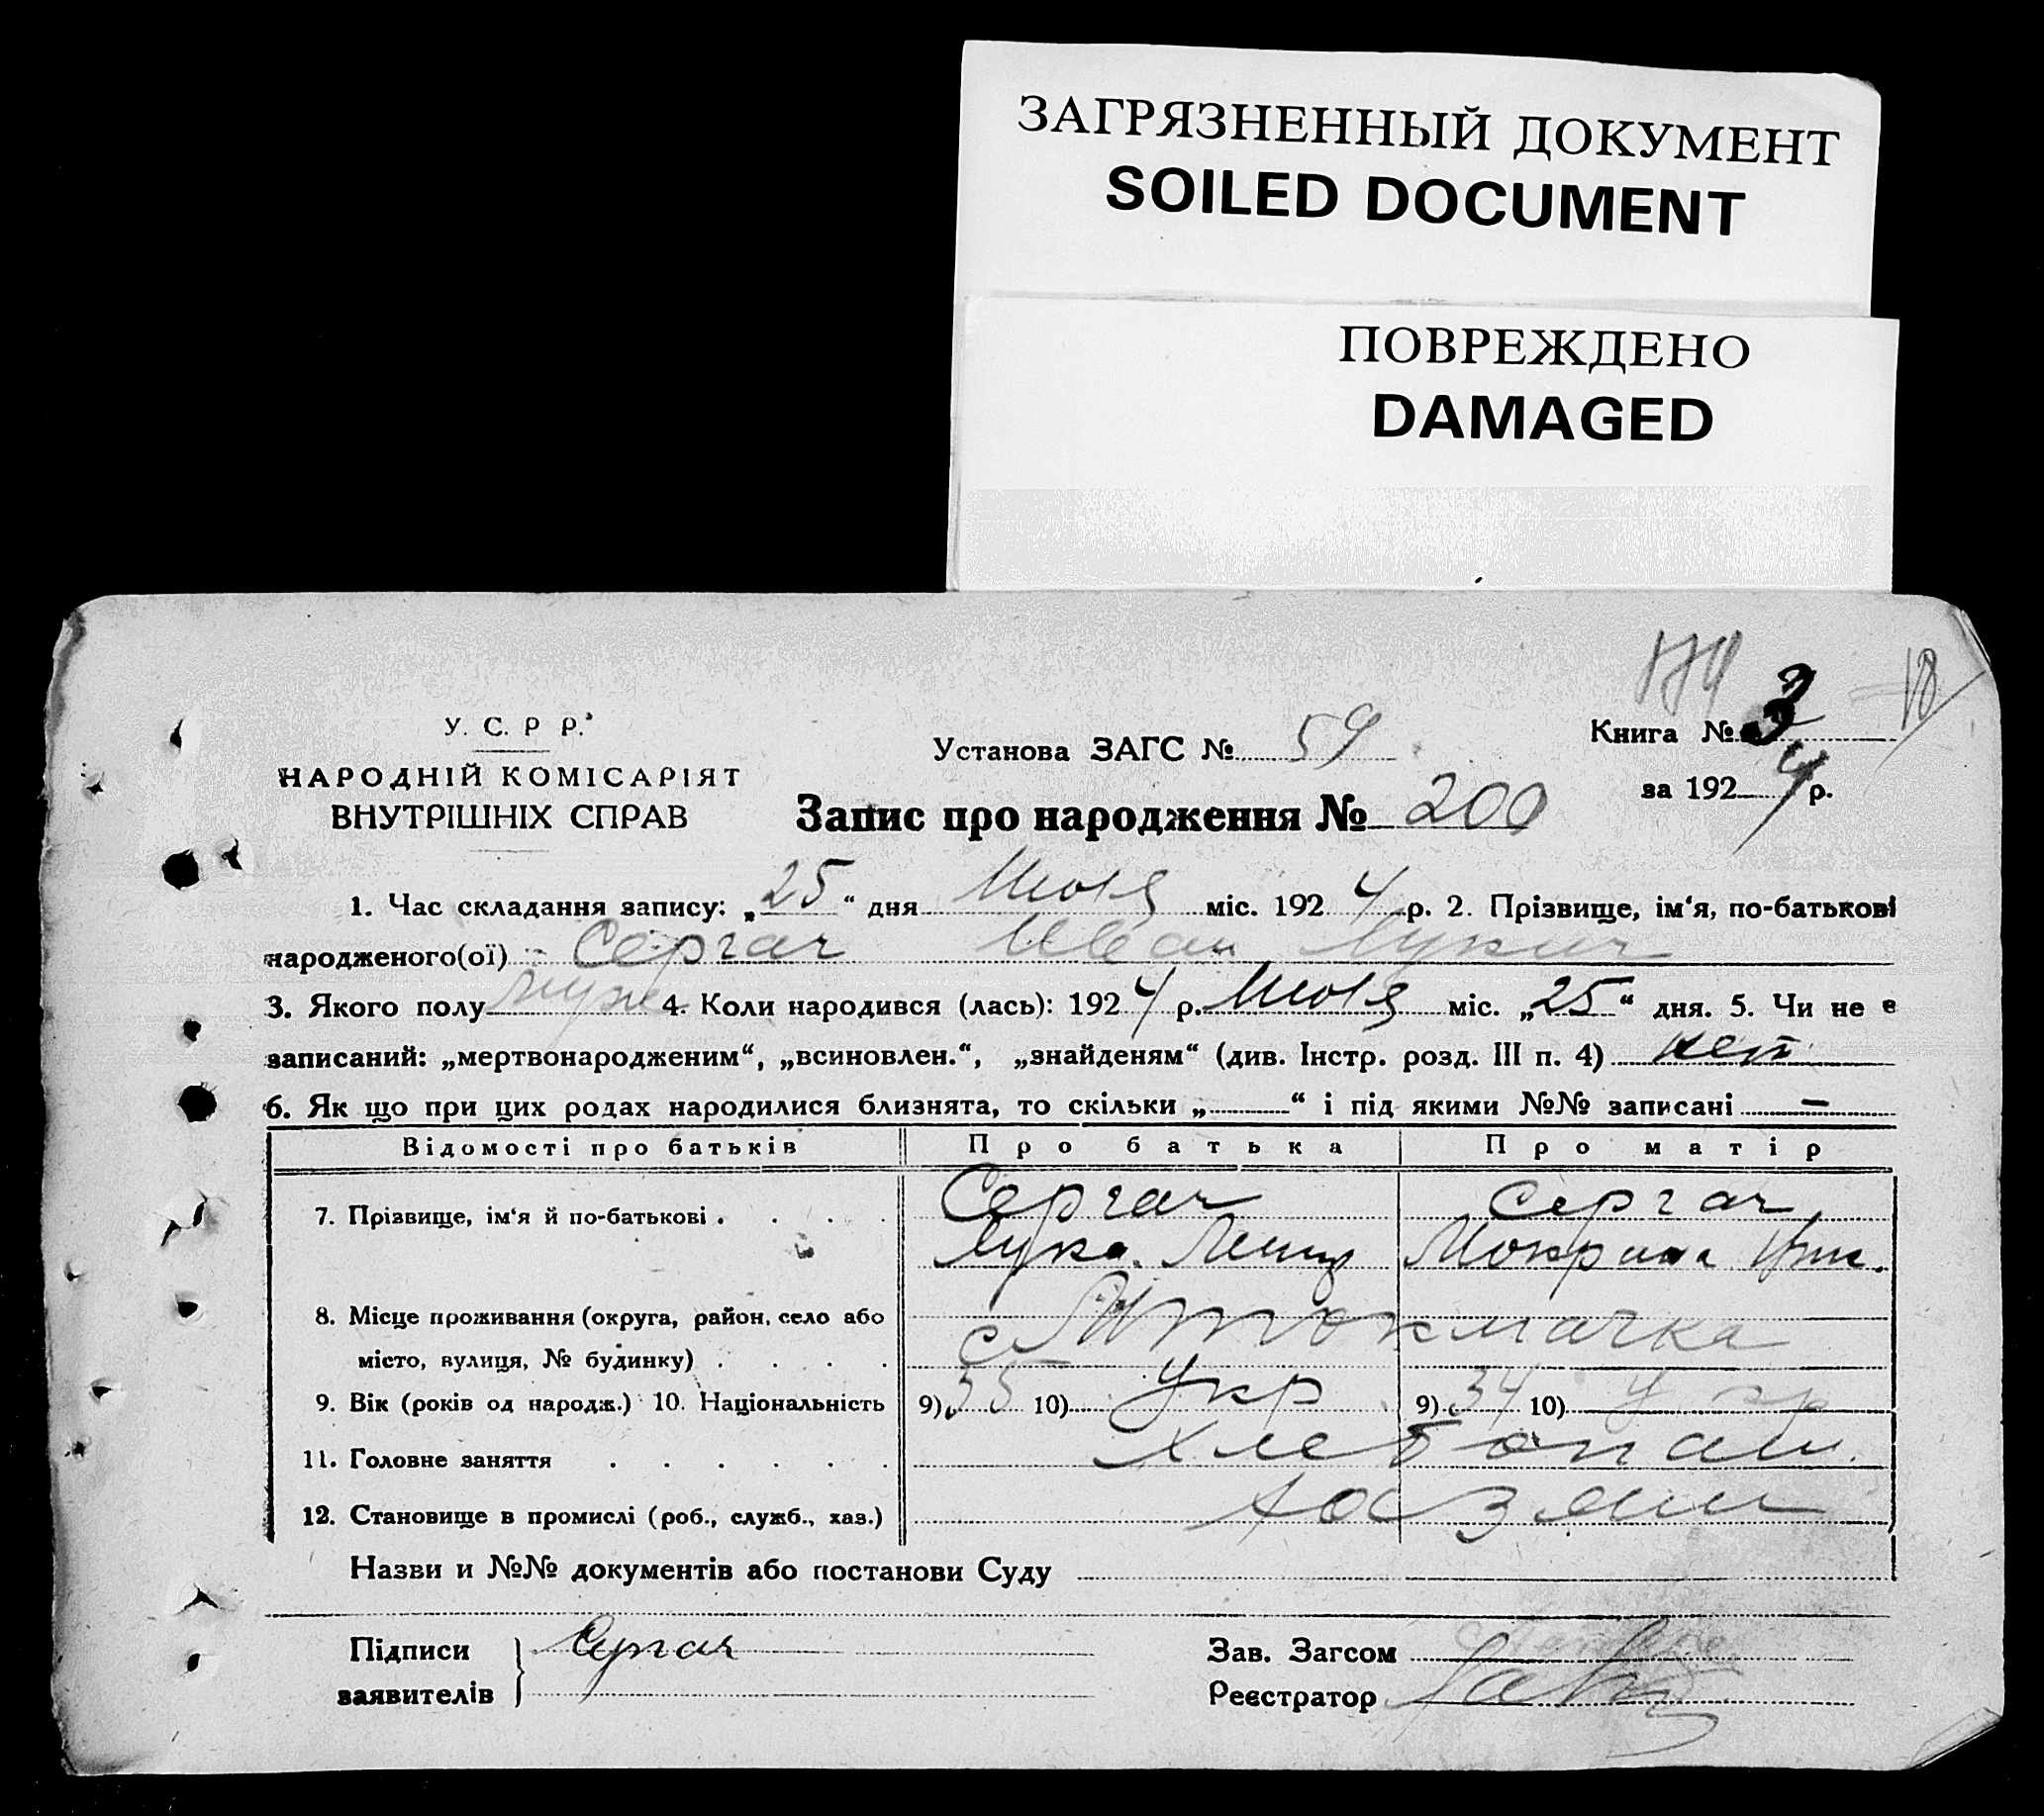 ЗАГРЯЗНЕННЫЙ ДОКУМЕНТ
SOILED DOCUMENT
ПОВРЕЖДЕНО
DAMAGED
18
У. С. Р Р.
НАРОДНІЙ КОМІСАРІЯТ
ВНУТРІШНІХ СПРАВ
Установа ЗАГС № 59
Книга № 3
за 1924 р.
Запис про народження № 200
1. Час складання запису: „25“ дня Июля міс. 1924 р. 2. Прізвище, ім'я, по-батькові
народженого(ої) Сергач Иван Лукич
3. Якого полу муж 4. Коли народився (лась): 1924 р. Июля міс. „25“ дня. 5. Чи не є
записаний: „мертвонародженим“, „всиновлен.“, „знайденям“ (див. Інстр. розд. III п. 4) нет
6. Як що при цих родах народилися близнята, то скільки „ “ і під якими №№ записані –
Відомості про батьків Про батька Про матір
7. Прізвище, ім'я й по-батькові . Сергач Сергач
Лука Мокрина
8. Місце проживання (округа, район, село або
місто, вулиця, № будинку) . с. Токмачка
9. Вік (років од народж.) 10. Національність 9) 35 10) Укр 9) 34 10) Укр
11. Головне заняття Хлебопаш.
12. Становище в промислі (роб., служб., хаз.) Хозяин
Назви и №№ документів або постанови Суду
Підписи Сергач
заявителів
Зав. Загсом
Реєстратор